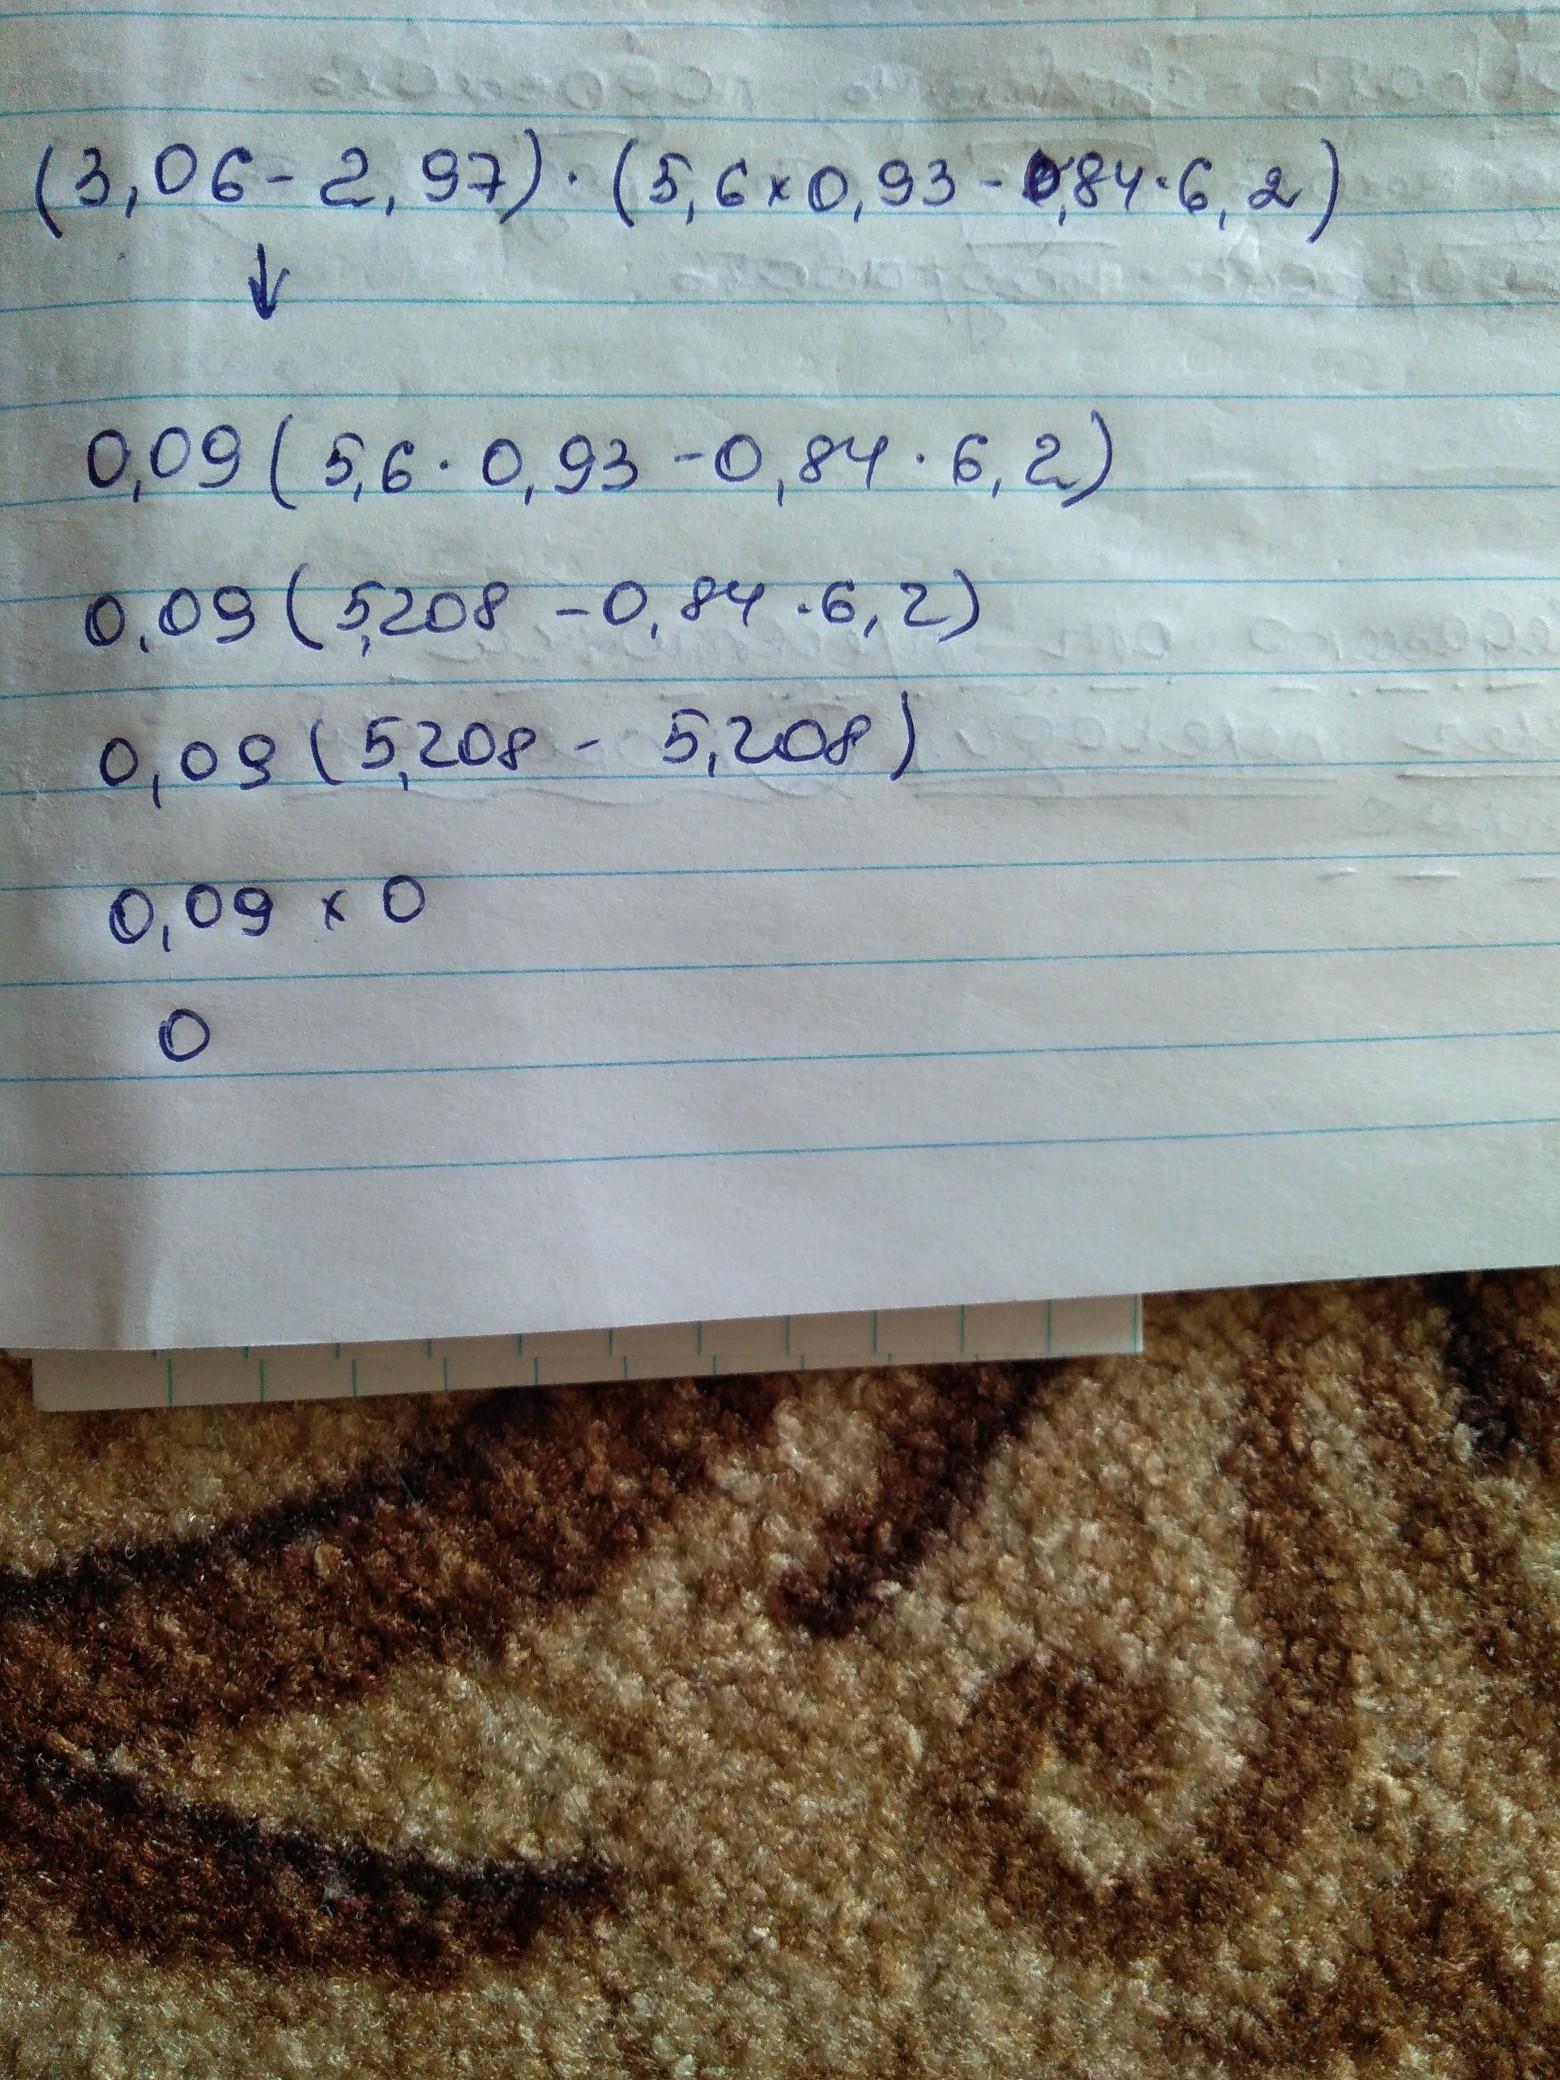 (3,06-2,97)·(5,6×0,93-0,84·6,2)
↓
0,09(5,6·0,93-0,84·6,2)
0,09(5,208-0,84·6,2)
0,09(5,208-5,208)
0,09×0
0